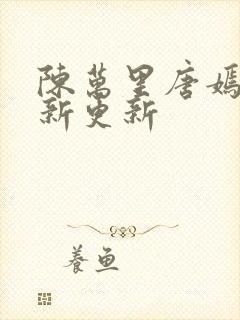 陳萬里唐嫣
新更新
養魚